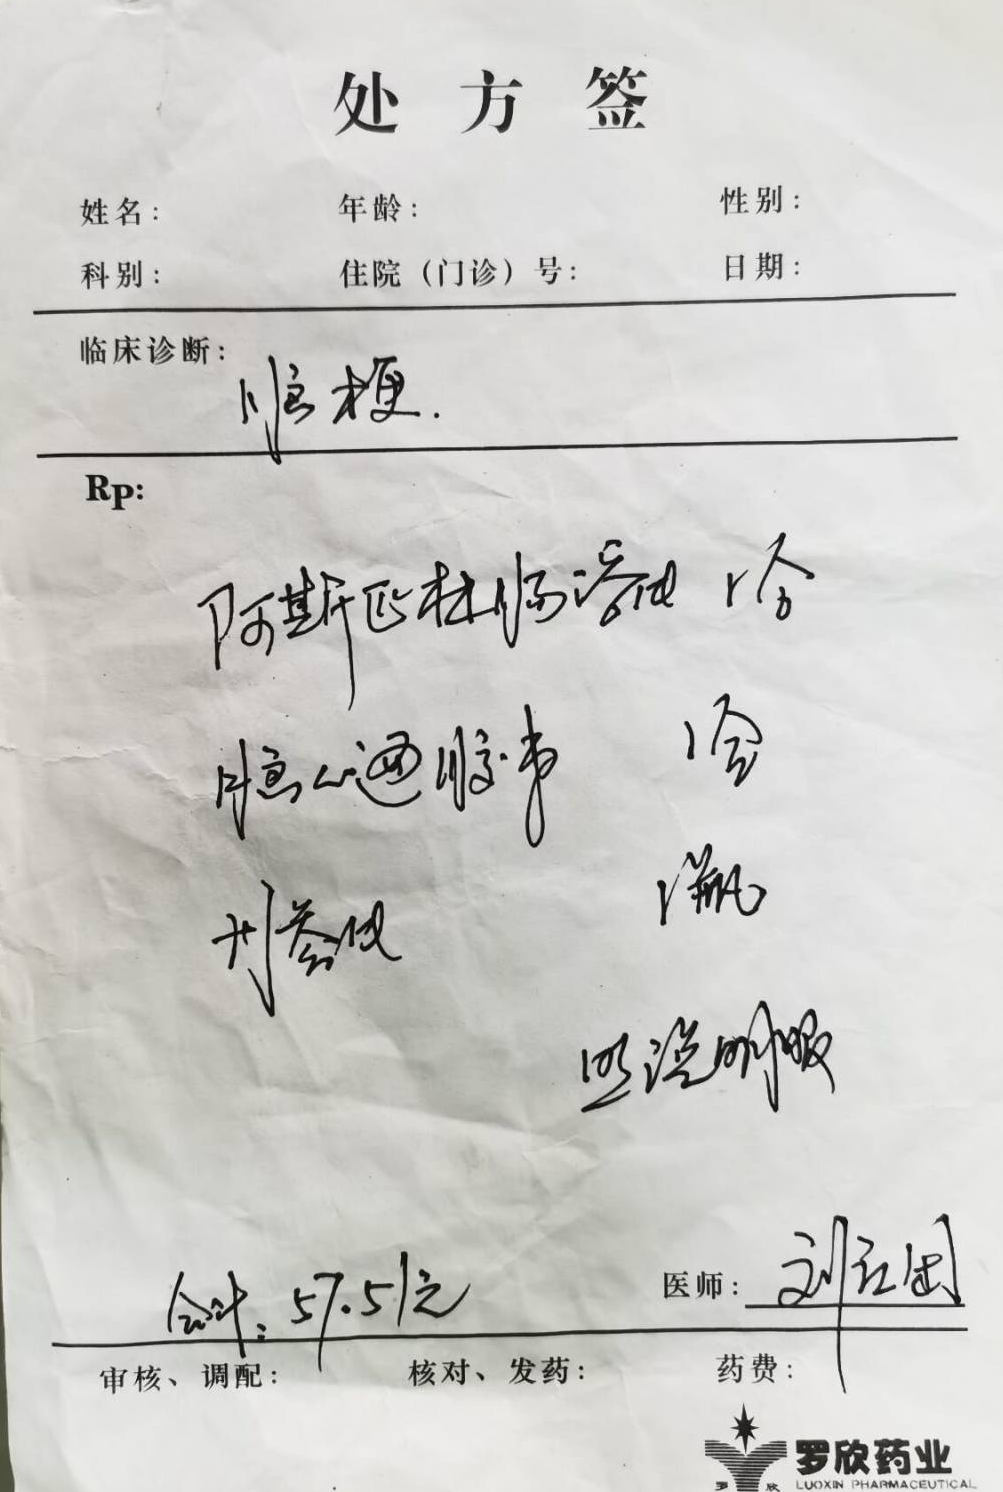 处方签
姓名： 年龄： 性别：
科别： 住院（门诊）号： 日期：
临床诊断：
脑梗.
Rp:
阿斯匹林肠溶 1合
脑心通胶 1合
1瓶
照说明服
合计：57.51元
医师：刘
审核、调配： 核对、发药： 药费：
罗欣
罗欣药业
LUOXIN PHARMACEUTICAL